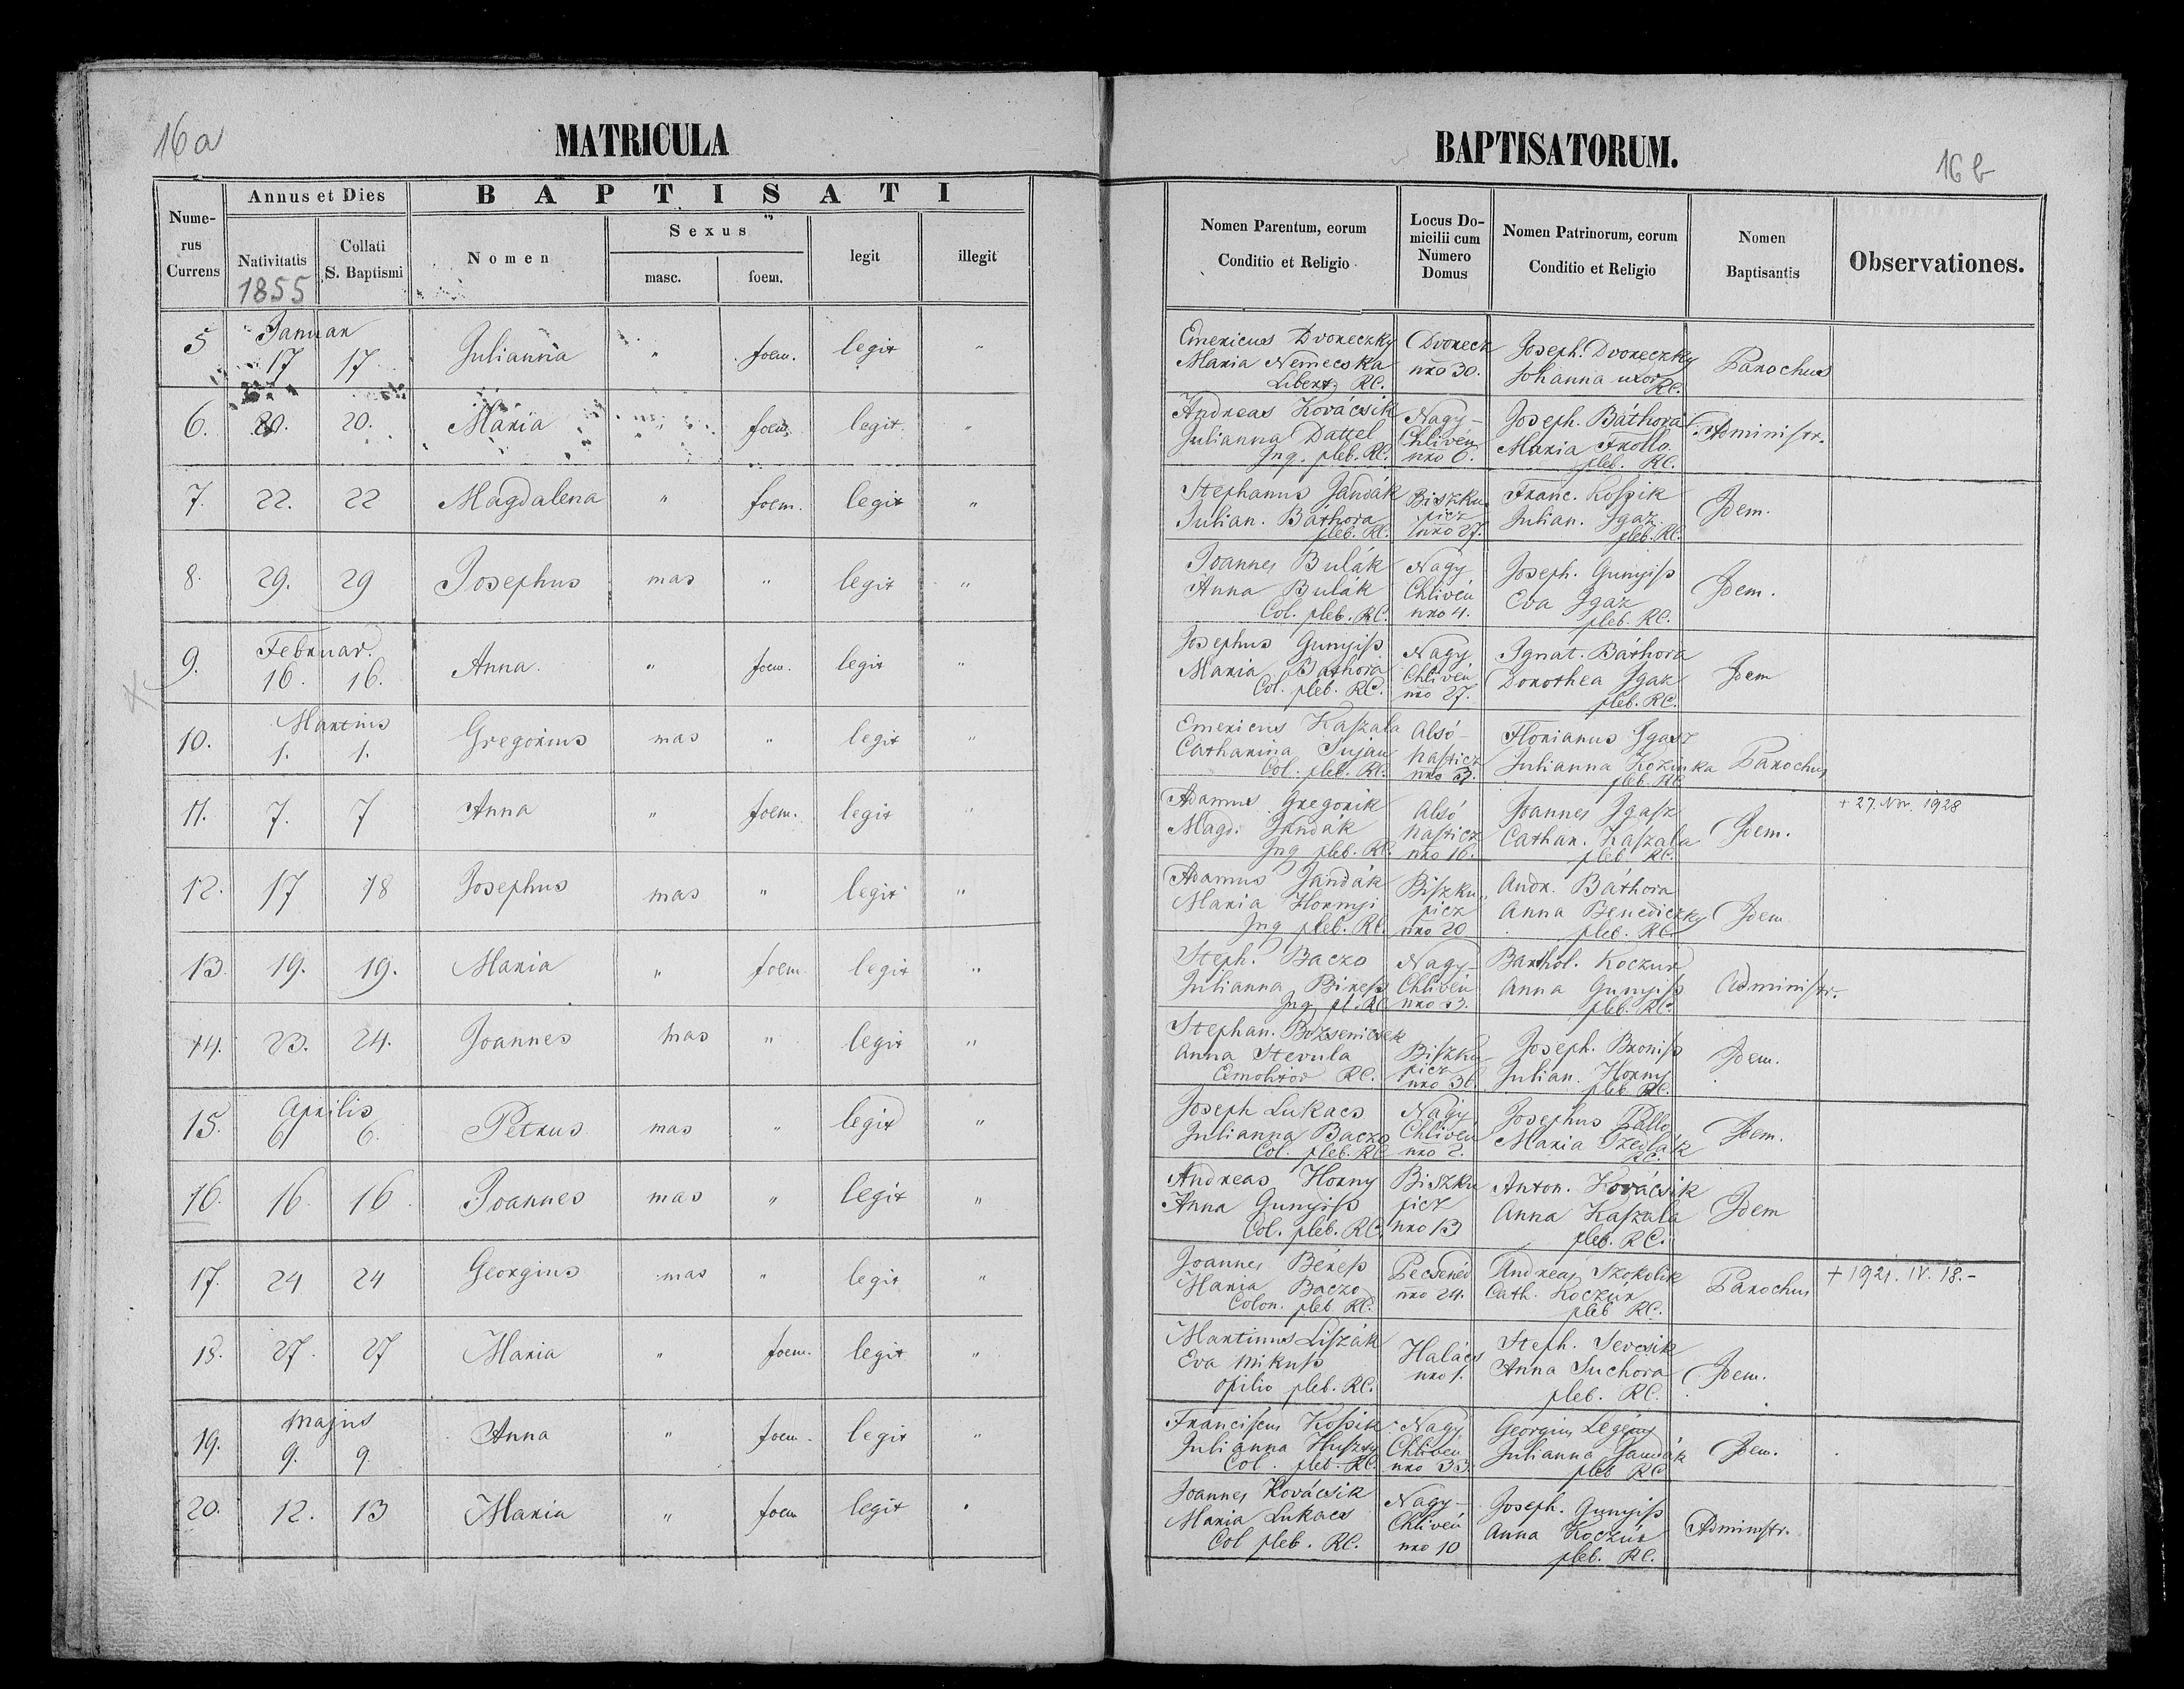 16a
MATRICULA
Numerus Currens
Annus et Dies
BAPTISATI
Nativitatis 1855
Collati S. Baptismi
Nomen
Sexus
masc.
foem.
legit
illegit
5 Januar 17 17 Julianna " foem. legit "
6. 20. 20. Maria " foem. legit. "
7. 22. 22 Magdalena " foem. legit "
8. 29. 29 Josephus mas " legit "
9. Februar. 16. 16. Anna. " foem. legit "
10. Martius 1. 1. Gregorius mas " legit "
11. 7. 7 Anna " foem. legit "
12. 17 18 Josephus mas " legit "
13. 19. 19. Maria " foem. legit "
14. 23. 24. Joannes mas " legit "
15. Aprilis 6 6. Petrus mas " legit "
16. 16. 16. Joannes mas " legit "
17. 24 24 Georgius mas " legit "
18. 27. 27 Maria " foem. legit "
19. Majus 9. 9. Anna " foem. legit "
20. 12. 13 Maria " foem legit "
BAPTISATORUM.
16b
Nomen Parentum, eorum Conditio et Religio
Locus Domicilii cum Numero Domus
Nomen Patrinorum, eorum Conditio et Religio
Nomen Baptisantis
Observationes.
Emericus Dvoreczky Dvoreck Joseph. Dvoreczky
Maria Nemecska nro 30. Johanna uxor Parochus
Libert. RC. RC.
Andreas Kovácsik Nagy- Joseph. Báthora
Julianna Dattel Chlivén Maria Frollo. Administr.
Inq. pleb. RC. nro 6. pleb. RC.
Stephanus Jandák Biszku Franc. Koſsik
Julian. Báthora picz Julian. Igaz. Idem.
pleb. RC. nro 27. pleb. RC.
Joannes Bulák Nagy Joseph. Gunyiſs
Anna Bulák Chlivén Eva Igaz Idem.
Col. pleb. RC. nro 4. pleb. RC.
Josephus Gunyiſs Nagy Ignat. Báthora
Maria Bathora Chlivén Dorothea Igaz Idem
Col. pleb. RC. nro 27. pleb. RC.
Emericus Kaſzala Alsó- Florianus Igasz
Catharina Sujan Naſticz Julianna Kozinka Parochus
Col. pleb. RC. nro 3. pleb. RC
Adamus Gregorik Alsó Joannes Igaſz + 27. Nov. 1928
Magd. Jandák Naſticz Cathar. Kaſzala Idem.
Inq pleb. RC. nro 16. pleb RC.
Adamus Jandák Biſzku Andr. Báthora
Maria Hornyi picz Anna Benediczky Idem
Inq pleb. RC. nro 20 pleb. RC.
Steph. Baczo Nagy- Barthol. Koczur
Julianna Bireſs Chlivén Anna Gunyiſs Administr.
Inq. pl. RC nro 23. pleb. RC.
Stephan. Bozsenicsek Joseph. Broniſs
Anna Stevula Biſzku picz Julian. Horny Idem.
Emolitor RC. nro 36. pleb. RC.
Joseph Lukacs Nagy Josephus Pallo
Julianna Baczo Chlivén Maria Szedlák Idem.
Col. pleb. RC nro 2. RC.
Andreas Horny Biszku Anton. Kovácsik
Anna Gunyiſs picz Anna Kaſzala Idem
Col. pleb. RC. nro 13 pleb. RC.
Joannes Béreſs Pecsenéd Andreas Szokolik + 1921. IV. 18.-
Maria Baczo nro 24. Cath. Koczúr Parochus
Colon. pleb. RC. pleb RC.
Martinus Liſzák Halács Steph. Sevcsik
Eva Mikuſs nro 1. Anna Suchora Idem.
opilio pleb. RC. pleb. RC.
Franciſcus Koſsik Nagy Georgius Legény
Julianna Huſzty Chlivén Julianna Jandák Idem.
Col. pleb. RC. nro 33. pleb RC
Joannes Kovácsik Nagy- Joseph. Gunyiſs
Maria Lukacs Chlivén Anna Koczúr Administr.
Col pleb. RC. nro 10 pleb. RC.